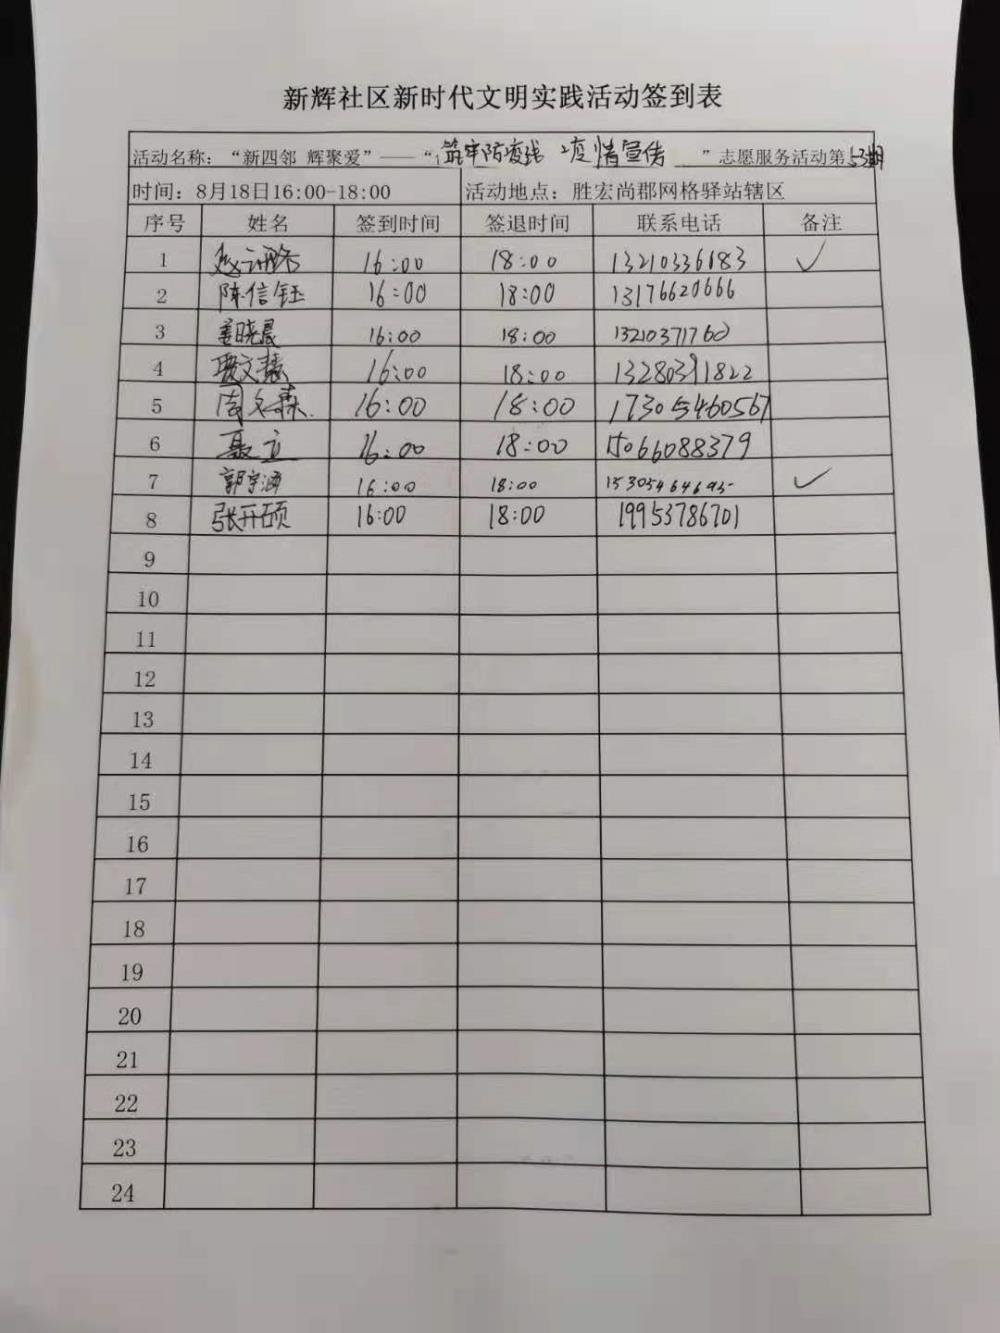 新辉社区新时代文明实践活动签到表
活动名称：“新四邻 辉聚爱”——“筑牢防疫线 疫情宣传”志愿服务活动第53期
时间：8月18日16:00-18:00 活动地点：胜宏尚郡网格驿站辖区
序号 姓名 签到时间 签退时间 联系电话 备注
1 16:00 18:00 13210336683 ✓
2 陈信钰 16:00 18:00 13176620666
3 姜晓晨 16:00 18:00 13210371760
4 文慧 16:00 18:00 13280391822
5 周文森 16:00 18:00 17305460567
6 聂立 16:00 18:00 15066088379
7 郭宇涵 16:00 18:00 ✓
8 张开硕 16:00 18:00 19953786701
9
10
11
12
13
14
15
16
17
18
19
20
21
22
23
24